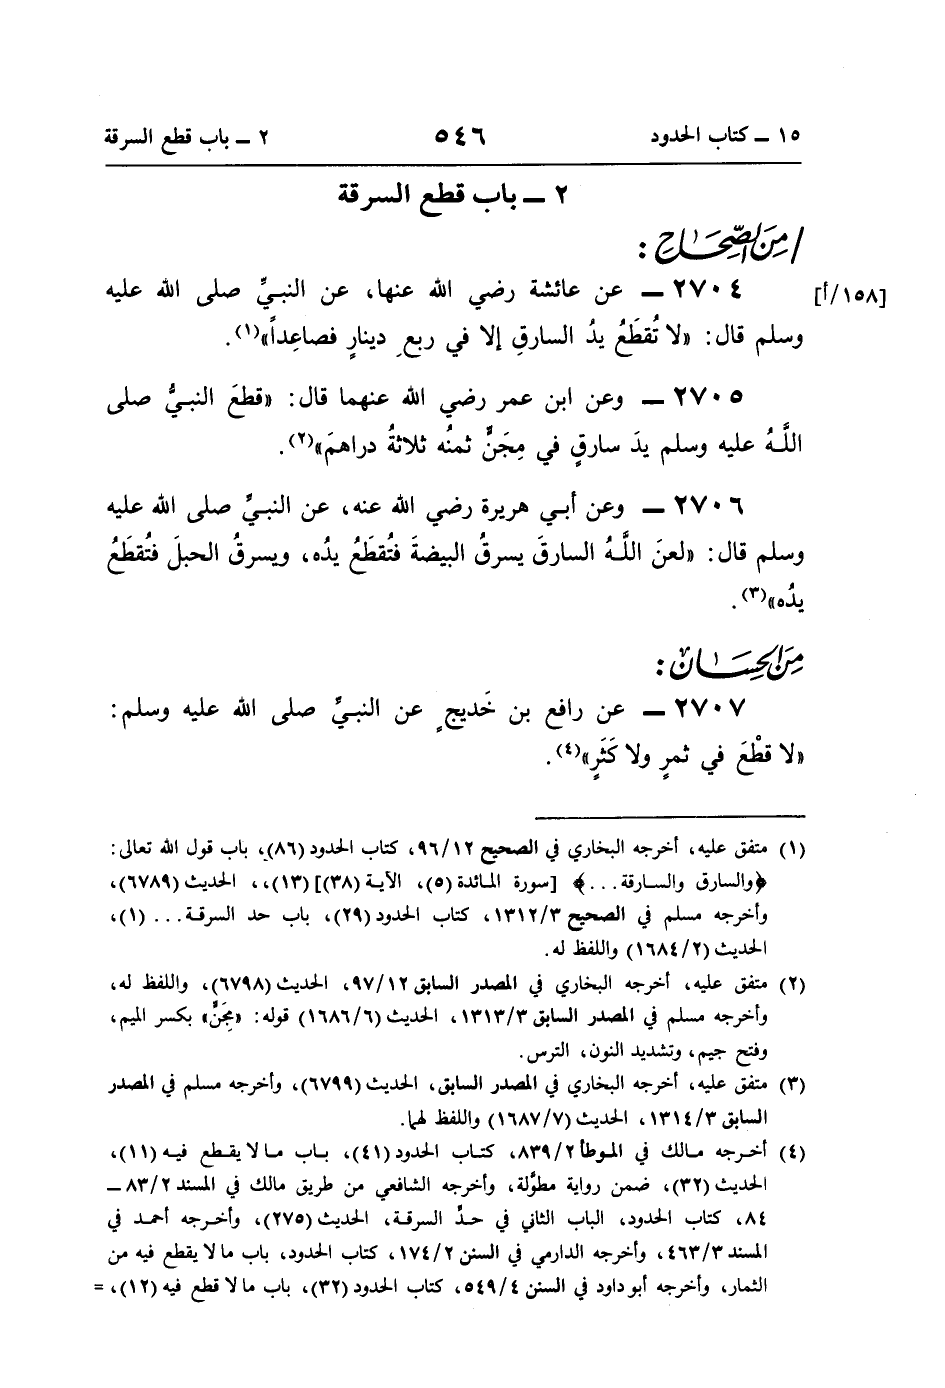 ١٥ ــ كتاب الحدود ٥٤٦ ٢ ــ باب قطع السرقة
٢ ــ باب قطع السرقة
/ مِنَ الصِّحَاحِ :
[١٥٨/أ] ٢٧٠٤ ــ عن عائشة رضي الله عنها، عن النبيِّ صلى الله عليه
وسلم قال: «لا تُقطَعُ يدُ السارقِ إلا في ربعِ دينارٍ فصاعِداً»(١).
٢٧٠٥ ــ وعن ابن عمر رضي الله عنهما قال: «قطعَ النبيُّ صلى
اللَّهُ عليه وسلم يدَ سارقٍ في مِجَنٍّ ثمنُه ثلاثةُ دراهمَ»(٢).
٢٧٠٦ ــ وعن أبي هريرة رضي الله عنه، عن النبيِّ صلى الله عليه
وسلم قال: «لعنَ اللَّهُ السارقَ يسرقُ البيضةَ فتُقطَعُ يدُه، ويسرقُ الحبلَ فتُقطَعُ
يدُه»(٣).
مِنَ الحِسَانِ :
٢٧٠٧ ــ عن رافع بن خَديجٍ عن النبيِّ صلى الله عليه وسلم:
«لا قطْعَ في ثمرٍ ولا كَثَرٍ»(٤).
(١) متفق عليه، أخرجه البخاري في الصحيح ٩٦/١٢، كتاب الحدود (٨٦)، باب قول الله تعالى:
﴿والسارق والسارقة...﴾ [سورة المائدة (٥)، الآية (٣٨)] (١٣)،، الحديث (٦٧٨٩)،
وأخرجه مسلم في الصحيح ١٣١٢/٣، كتاب الحدود (٢٩)، باب حد السرقة... (١)،
الحديث (١٦٨٤/٢) واللفظ له.
(٢) متفق عليه، أخرجه البخاري في المصدر السابق ٩٧/١٢، الحديث (٦٧٩٨)، واللفظ له،
وأخرجه مسلم في المصدر السابق ١٣١٣/٣، الحديث (١٦٨٦/٦) قوله: «مِجَنٍّ» بكسر الميم،
وفتح جيم، وتشديد النون، الترس.
(٣) متفق عليه، أخرجه البخاري في المصدر السابق، الحديث (٦٧٩٩)، وأخرجه مسلم في المصدر
السابق ١٣١٤/٣، الحديث (١٦٨٧/٧) واللفظ لهما.
(٤) أخرجه مالك في الموطأ ٨٣٩/٢، كتاب الحدود (٤١)، باب ما لا يقطع فيه (١١)،
الحديث (٣٢)، ضمن رواية مطوَّلة، وأخرجه الشافعي من طريق مالك في المسند ٨٣/٢ ــ
٨٤، كتاب الحدود، الباب الثاني في حدِّ السرقة، الحديث (٢٧٥)، وأخرجه أحمد في
المسند ٤٦٣/٣، وأخرجه الدارمي في السنن ١٧٤/٢، كتاب الحدود، باب ما لا يقطع فيه من
الثمار، وأخرجه أبو داود في السنن ٥٤٩/٤، كتاب الحدود (٣٢)، باب ما لا قطع فيه (١٢)، =